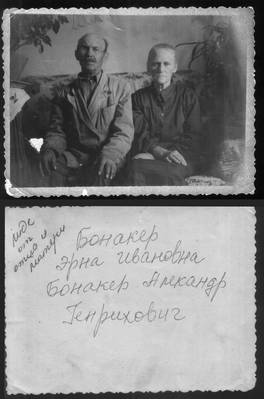 Иде
от
отца и
матери
Бонакер
Эрна Ивановна
Бонакер Александр
Генрихович